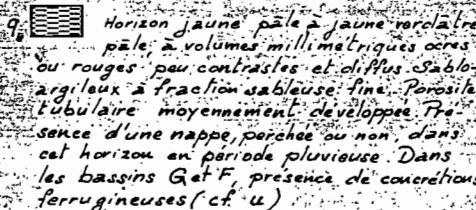 Horizon jaune pâle à jaune verdâtre
pâle, à volumes millimétriques ocres
ou rouges peu contrastés et diffus. Sablo-
argileux à fraction sableuse fine. Porosité
tubulaire moyennement développée. Pré-
sence d'une nappe, perchée ou non, dans
cet horizon en période pluvieuse. Dans
les bassins G et F, présence de concrétions
ferrugineuses (cf. u)